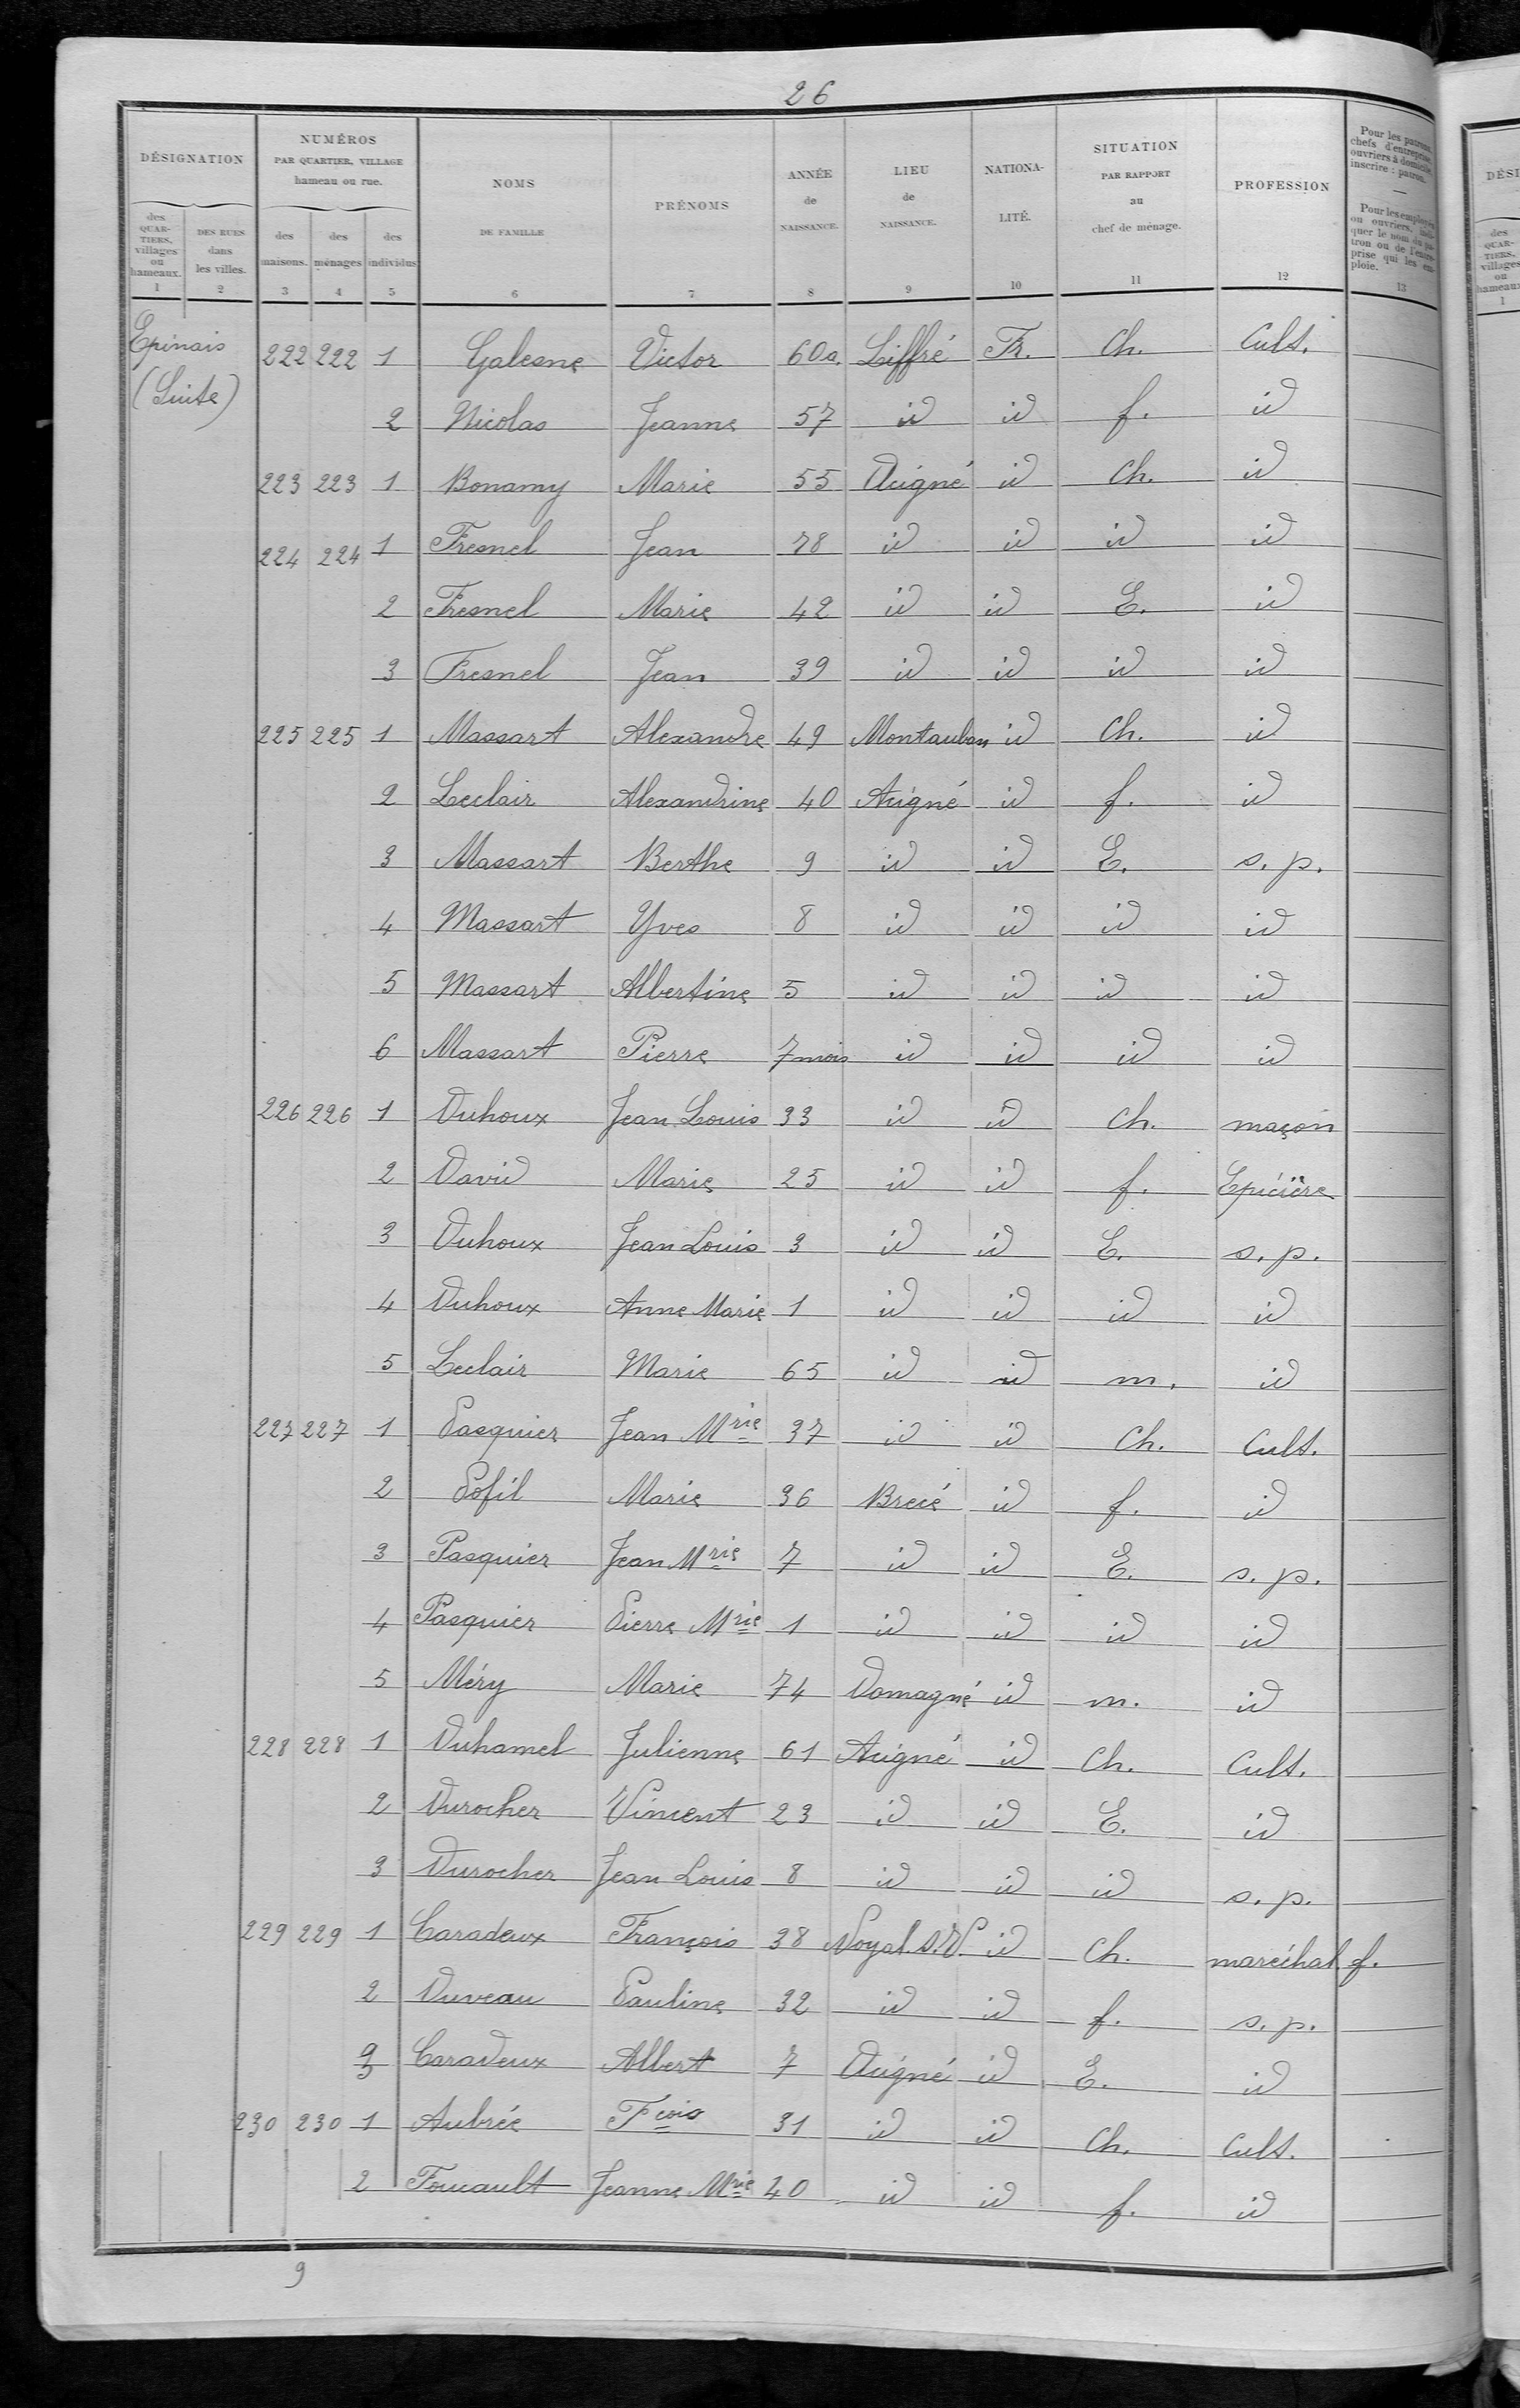 26
DÉSIGNATION
NUMÉROS PAR QUARTIER, VILLAGE hameau ou rue.
NOMS DE FAMILLE
PRÉNOMS
ANNÉE de NAISSANCE.
LIEU de NAISSANCE.
NATIONA-LITÉ.
SITUATION PAR RAPPORT au chef de ménage.
PROFESSION
Pour les patrons, chefs d'entreprise, ouvriers à domicile, inscrire : patron.
— Pour les employés ou ouvriers, indiquer le nom du patron ou de l'entreprise qui les emploie.
des QUAR-TIERS, villages ou hameaux. DES RUES dans les villes. des maisons. des ménages des individus
1 2 3 4 5 6 7 8 9 10 11 12 13
Epinais 222 222 1 Galesne Victor 60 a. Liffré Fr. Ch. Cult.
(Suite) 2 Nicolas Jeanne 57 id id f. id
223 223 1 Bonamy Marie 55 Acigné id Ch. id
224 224 1 Fresnel Jean 78 id id id id
2 Fresnel Marie 42 id id E. id
3 Fresnel Jean 39 id id id id
225 225 1 Massart Alexandre 49 Montauban id Ch. id
2 Leclair Alexandrine 40 Acigné id f. id
3 Massart Berthe 9 id id E. s. p.
4 Massart Yves 8 id id id id
5 Massart Albertine 5 id id id id
6 Massart Pierre 7 mois id id id id
226 226 1 Duhoux Jean Louis 33 id id Ch. maçon
2 David Marie 25 id id f. Epicière
3 Duhoux Jean Louis 3 id id E. s. p.
4 Duhoux Anne Marie 1 id id id id
5 Leclair Marie 65 id id m. id
227 227 1 Pasquier Jean Mrie 37 id id Ch. Cult.
2 Pofil Marie 36 Brecé id f. id
3 Pasquier Jean Mrie 7 id id E. s. p.
4 Pasquier Pierre Mrie 1 id id id id
5 Méry Marie 74 Domagné id m. id
228 228 1 Duhamel Julienne 61 Acigné id Ch. Cult.
2 Durocher Vincent 23 id id E. id
3 Durocher Jean Louis 8 id id id s. p.
229 229 1 Caradeux François 38 Noyal s. V. id Ch. maréchal f.
2 Duveau Pauline 32 id id f. s. p.
3 Caradeux Albert 7 Acigné id E. id
230 230 1 Aubrée Fcois 31 id id Ch. Cult.
2 Foucault Jeanne Mrie 40 id id f. id
9
DÉSI
des QUAR-TIERS, villages ou hameaux
1